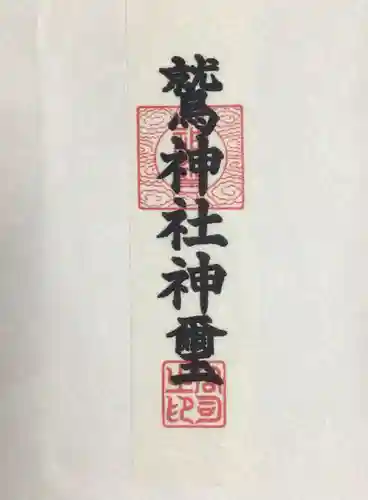 鷲神社神璽
宮司之印